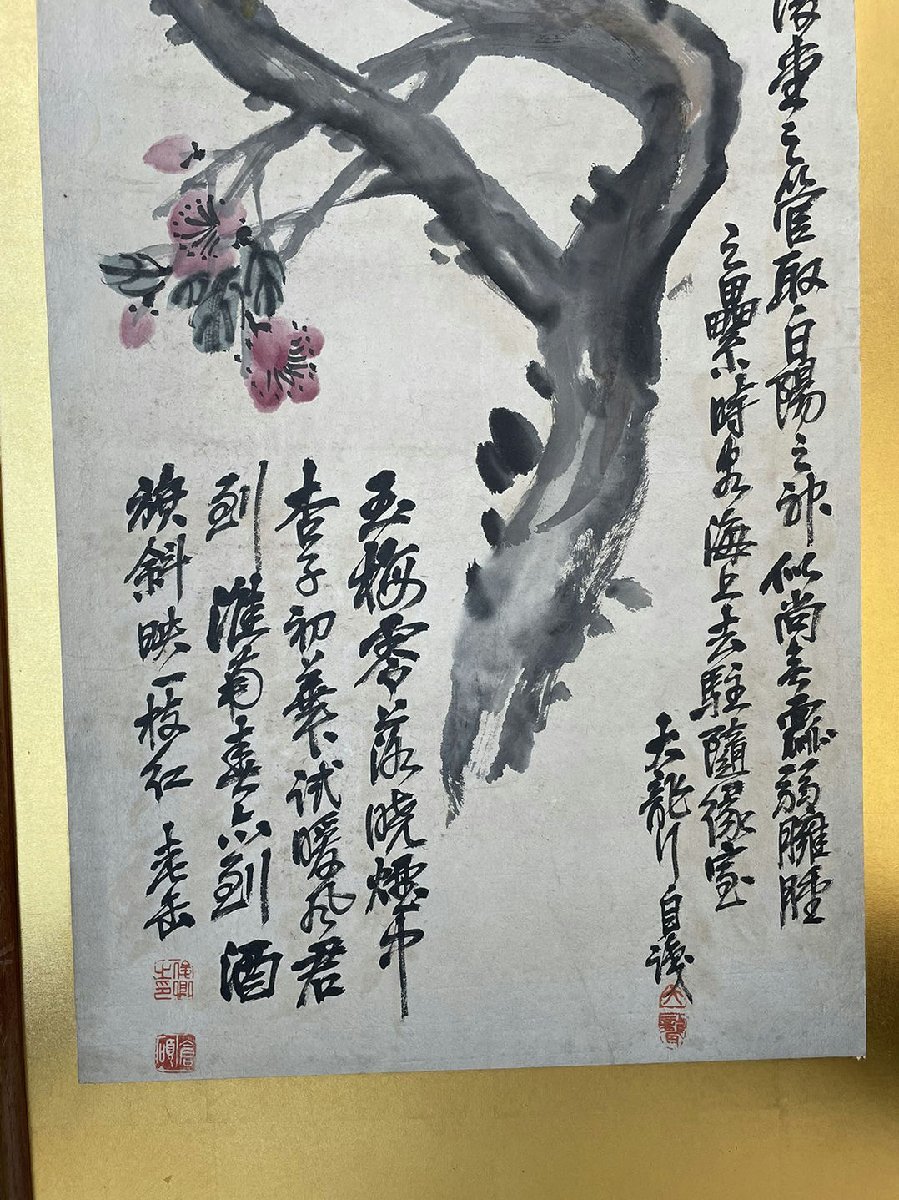 堂之管取白陽之神似尚無弱臃腫
之纍時客海上去駐隨緣室
大聾自識
大聾
玉梅零落曉煙中
杏子初華試暖風君
到淮南春亦到酒
旗斜映一枝紅 老缶
俊卿之印
倉碩